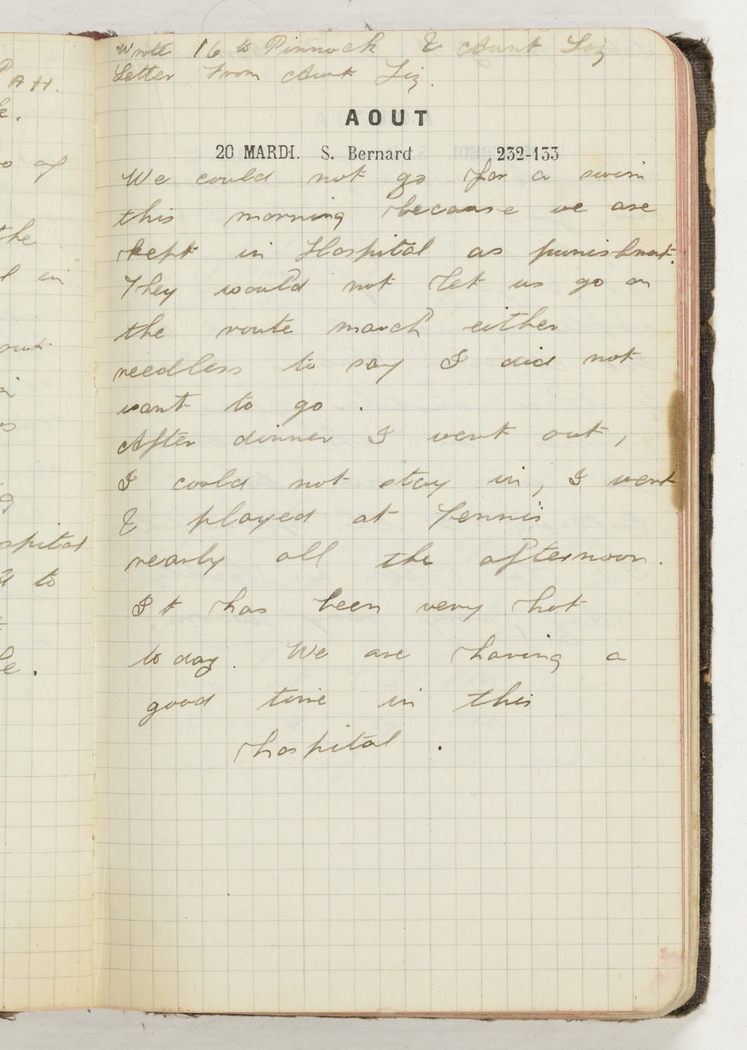 PAH.
e.
of
the
in
ospital
to
e.
Wrote 16 to Pinnock & Aunt Liz
Letter From Aunt Liz.
AOUT
20 MARDI. S. Bernard 232-133
We could not go for a swim
this morning because we are
kept in Hospital as punishmt.
They would not let us go on
the route march either
needless to say I did not
want to go .
After dinner I went out,
I could not stay in, I went
& played at Tennis
nearly all the afternoon.
It has been very hot
to day. We are having a
good time in this
hospital .